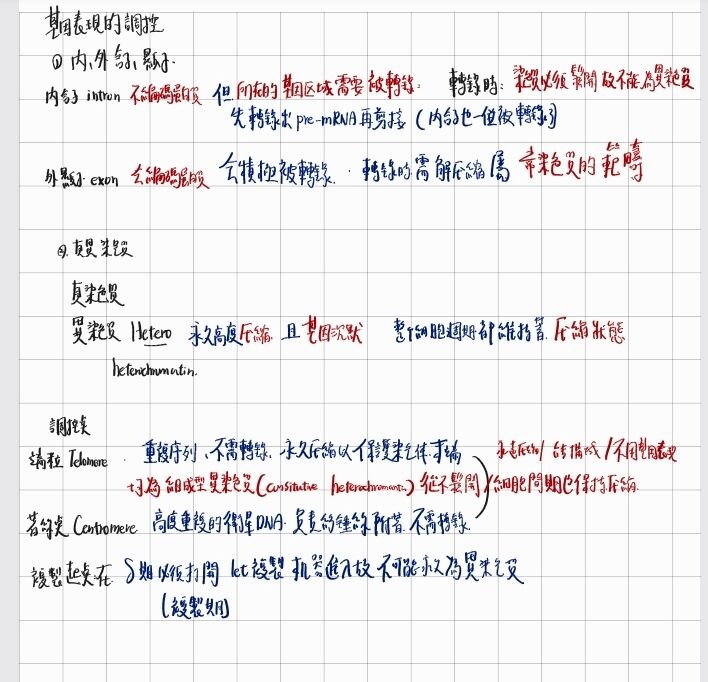 基因表現的調控
① 內、外含子、顯子.
內含子 intron 不編碼蛋白質 但所在的基因区域需要被轉錄. 轉錄時: 染色質必須鬆開 故不能為異染色質
先轉錄出 pre-mRNA 再剪接 (內含子也一但被轉錄)
外顯子 exon 会編碼蛋白質 会積極被轉錄. 轉錄時需解压縮屬 常染色質的範疇
②. 真異染色質
真染色質
異染色質 Hetero 永久高度压縮 且基因沉默 整个細胞週期都維持著 压縮狀態
heterochromatin.
調控点
端粒 Telomere. 重複序列、不需轉錄. 永久压縮以保護染色体末端 永遠压縮/結構域/不用基因表現
均為組成型異染色質 (constitutive heterochromatin) 從不鬆開/細胞間期也保持压縮.
著絲点 Centromere 高度重複的衛星DNA. 負責紡錘絲附著. 不需轉錄.
複製起点在 S期必須打開 let 複製机器進入故不可能永久為異染色質
(複製期)